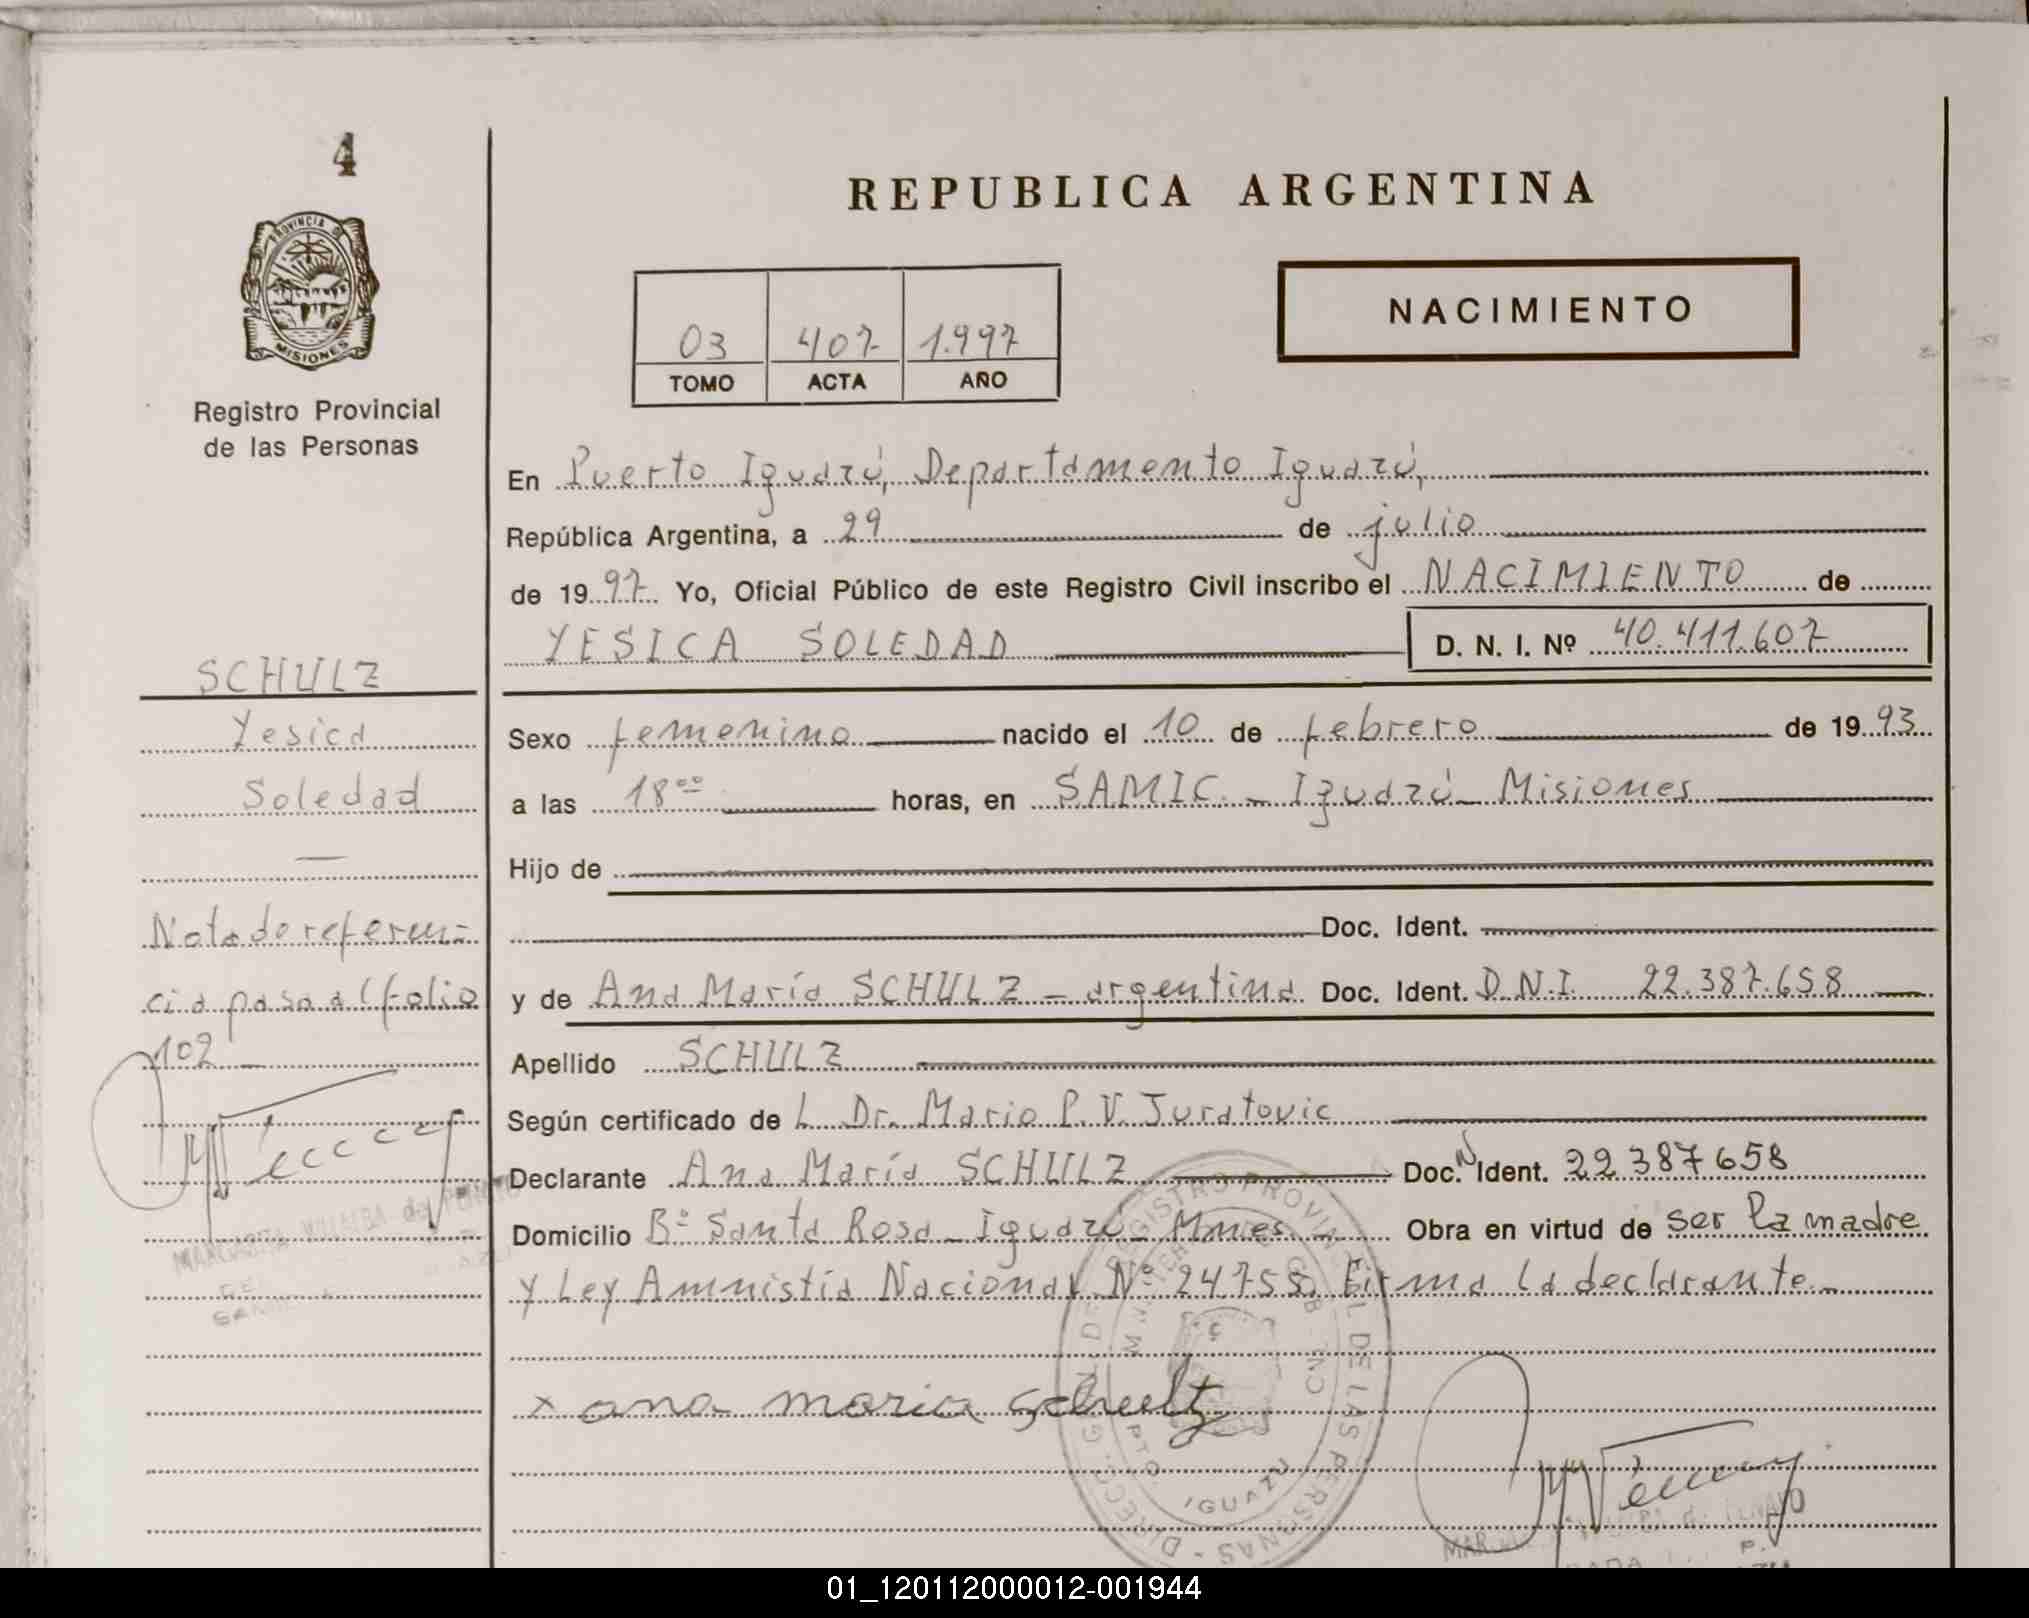 4
PROVINCIA DE
MISIONES
Registro Provincial
de las Personas
REPUBLICA ARGENTINA
03 407 1.997
TOMO ACTA AÑO
NACIMIENTO
En Puerto Iguazú, Departamento Iguazú,
República Argentina, a 29 de julio
de 1997 Yo, Oficial Público de este Registro Civil inscribo el NACIMIENTO de
YESICA SOLEDAD D. N. I. Nº 40.411.607
SCHULZ
Yesica
Soledad
Nota de referen-
cia pasa al folio
102
Sexo femenino nacido el 10 de febrero de 1993
a las 18⁰⁰ horas, en SAMIC - Iguazú - Misiones
Hijo de
Doc. Ident.
y de Ana María SCHULZ - argentina Doc. Ident. D.N.I. 22.387.658
Apellido SCHULZ
Según certificado de L Dr. Mario P. V. Juratovic
Declarante Ana María SCHULZ Doc. N Ident. 22387658
Domicilio Bº Santa Rosa - Iguazú - Mnes Obra en virtud de ser la madre
y Ley Amnistía Nacional Nº 24755. Firma la declarante.-
x ana maria schultz
REGISTRO PROVINCIAL DE LAS PERSONAS - DIRECC. GRAL. DE
PTO. IGUAZU
MARGARITA VILLALBA de
01_120112000012-001944